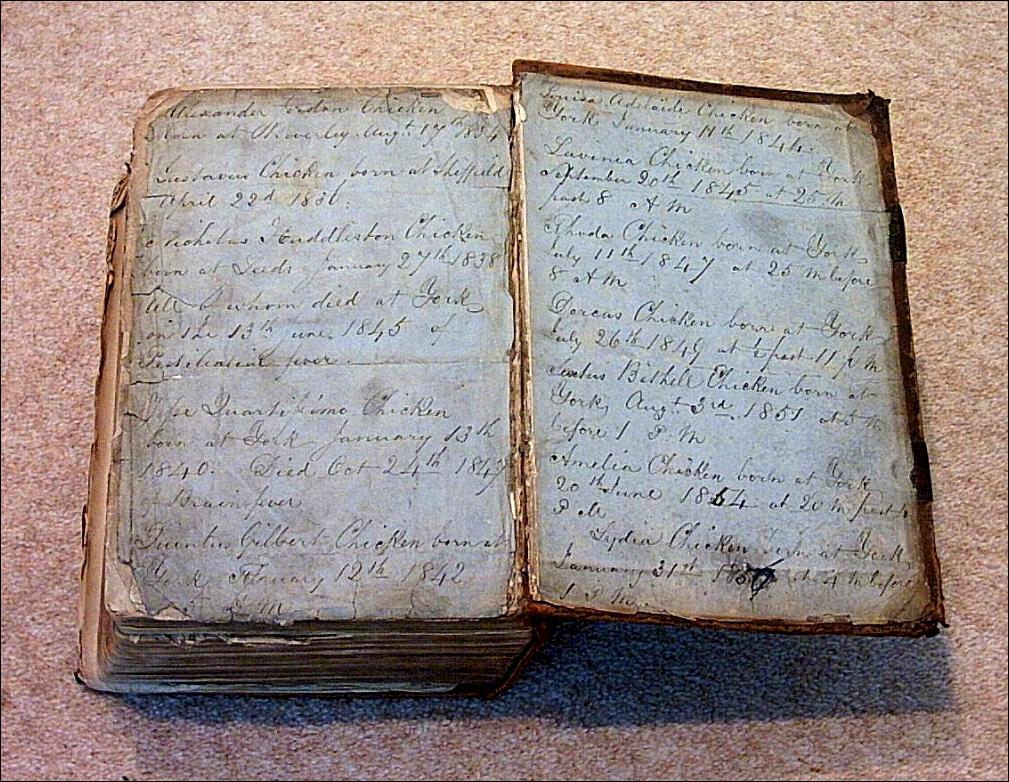 Alexander Chicken
born at Waverley Augt. 17th 1834
Gustavus Chicken born at Sheffield
April 22d 1836.
Nicholas Huddleston Chicken
born at Leeds January 27th 1838
All of whom died at York
on the 13th June 1845 of
Pestilential fever
Quartisimo Chicken
born at York January 13th
1840. Died Oct 24th 1847
of Brain fever
Quintus Gilbert Chicken born at
York February 12th 1842
M
Louisa Adelaide Chicken born at
York January 11th 1844
Lavinia Chicken born at York
September 20th 1845 at 25 m
past 8 A M
Rhoda Chicken born at York
July 11th 1847 at 25 m before
8 A M
Dorcas Chicken born at York
July 26th 1849 at ½ past 11 P M
Sextus Bethell Chicken born at
York, Augt. 3rd 1851 at 5 m
before 1 P. M
Amelia Chicken born at York
20th June 1854 at 20 m past
P M
Lydia Chicken born at York
January 31st at 4 m before
1 P. M.